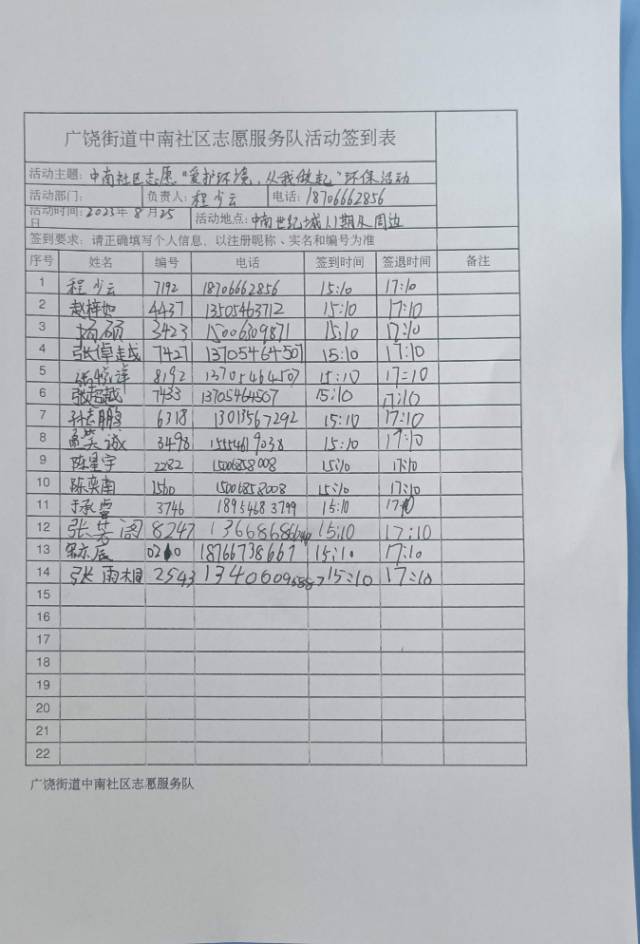 广饶街道中南社区志愿服务队活动签到表
活动主题: 中南社区志愿“爱护环境，从我做起”环保活动
活动部门: 负责人: 程少云 电话: 18706662856
活动时间: 2023年8月25日 活动地点: 中南世纪城 期及周边
签到要求：请正确填写个人信息，以注册昵称、实名和编号为准
序号 姓名 编号 电话 签到时间 签退时间 备注
1 程少云 7192 18706662856 15:10 17:10
2 赵梓如 4437 13505463712 15:10 17:10
3 杨硕 3423 15006309871 15:10 17:10
4 张倬越 7427 13705464507 15:10 17:10
5 8192 13705464507 15:10 17:10
6 张超越 7433 13705464507 15:10 17:10
7 孙志鹏 6318 13013567292 15:10 17:10
8 诚 3498 15:10 17:10
9 陈星宇 2282 15006858008 15:10 17:10
10 陈奕南 1560 15006858008 15:10 17:10
11 于承睿 3746 18954683799 15:10 17:10
12 张 阁 8247 15:10 17:10
13 辰 18766738667 15:10 17:10
14 张雨桐 2543 15:10 17:10
15
16
17
18
19
20
21
22
广饶街道中南社区志愿服务队